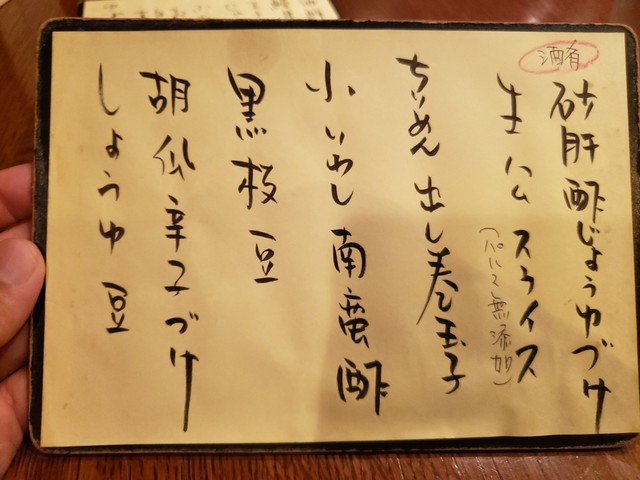 酒肴
砂肝酢じょうゆづけ
生ハムスライス
(パルマ無添加)
ちりめん出し巻玉子
小いわし南蛮酢
黒枝豆
胡瓜辛子づけ
しょうゆ豆